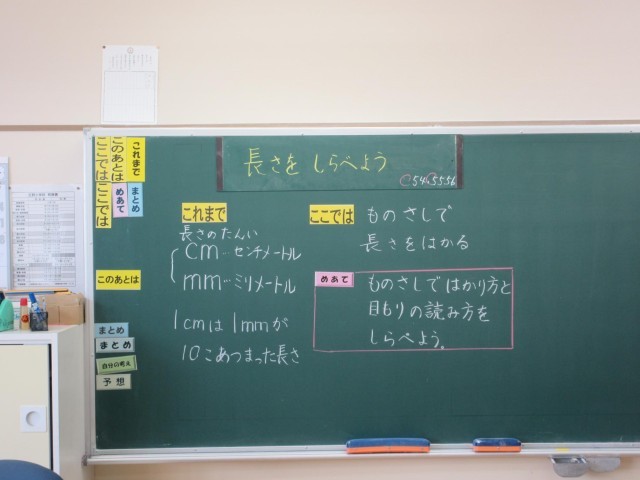 長さを しらべよう
これまで
このあとは
ここでは
まとめ
めあて
ここでは
このあとは
まとめ
まとめ
自分の考え
予想
これまで
長さのたんい
cm…センチメートル
mm…ミリメートル
1cmは1mmが
10こあつまった長さ
ここでは ものさしで
長さをはかる
めあて ものさしではかり方と
目もりの読み方を
しらべよう。